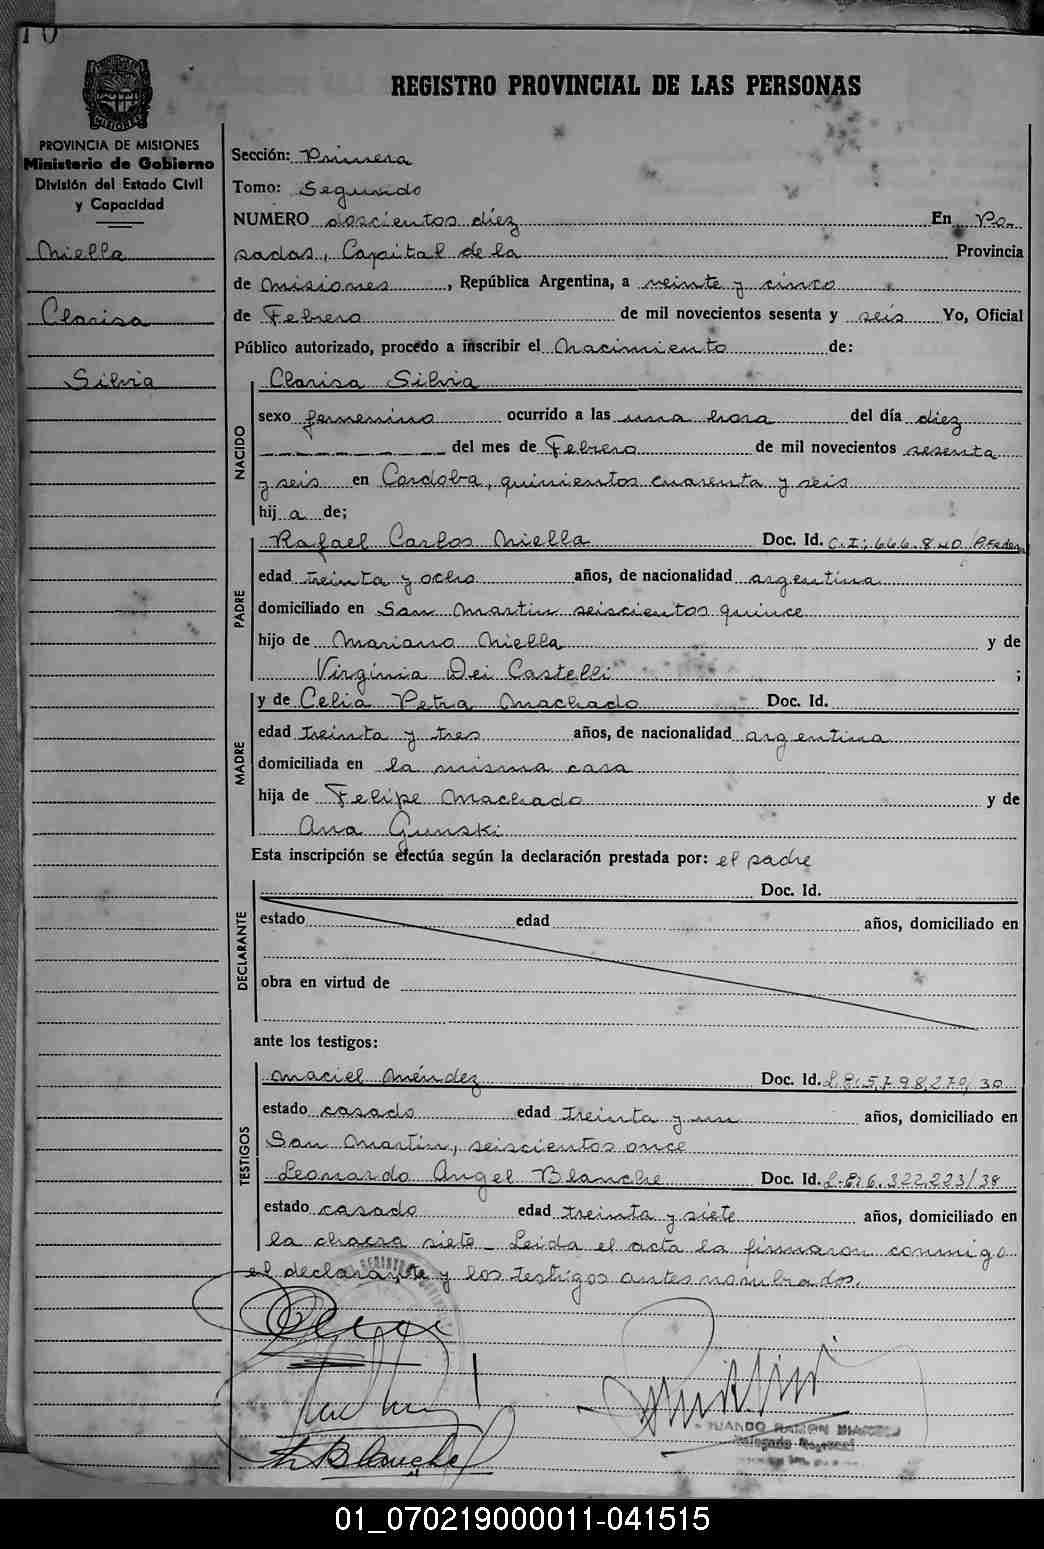 10
REGISTRO PROVINCIAL DE LAS PERSONAS
MISIONES
PROVINCIA DE MISIONES
Ministerio de Gobierno
División del Estado Civil
y Capacidad
Niella
Clarisa
Silvia
Sección: Primera
Tomo: Segundo
NUMERO doscientos diez En Po-
sadas, Capital de la Provincia
de Misiones, República Argentina, a veinte y cinco
de Febrero de mil novecientos sesenta y seis Yo, Oficial
Público autorizado, procedo a inscribir el Nacimiento de:
NACIDO
Clarisa Silvia
sexo femenino ocurrido a las una hora del día diez
del mes de Febrero de mil novecientos sesenta
y seis en Cordoba, quinientos cuarenta y seis
hij a de;
PADRE
Rafael Carlos Niella Doc. Id. C.I; 666.840/P.Federal
edad treinta y ocho años, de nacionalidad argentina
domiciliado en San Martin seiscientos quince
hijo de Mariano Niella y de
Virginia Dei Castelli ;
MADRE
y de Celia Petra Machado Doc. Id.
edad treinta y tres años, de nacionalidad argentina
domiciliada en la misma casa
hija de Felipe Machado y de
Ana Gunski
Esta inscripción se efectúa según la declaración prestada por: el padre
DECLARANTE
Doc. Id.
estado edad años, domiciliado en
obra en virtud de
ante los testigos:
TESTIGOS
Maciel Méndez Doc. Id. L.E; 5.798.270/30
estado casado edad treinta y un años, domiciliado en
San Martin, seiscientos once
Leonardo Angel Blanche Doc. Id. L.E; 6.322.223/38
estado casado edad treinta y siete años, domiciliado en
la chacra siete_ Leida el acta la firmaron conmigo
el declarante y los testigos antes nombrados.
Blanche
RAMON
Delegado
01_070219000011-041515